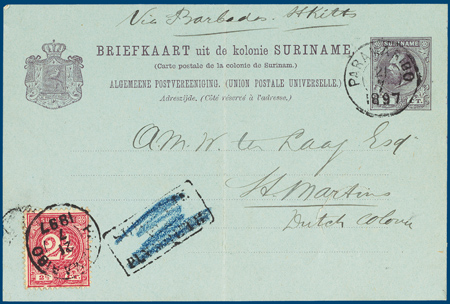 Via Barbados. St Kitts
BRIEFKAART uit de kolonie SURINAME.
(Carte postale de la colonie de Surinam.)
ALGEMEENE POSTVEREENIGING. (UNION POSTALE UNIVERSELLE.)
Adreszijde. (Côté réservé à l'adresse.)
SURINAME
PARAMARIBO
1897
A.M.W. ter Laag Esq
St. Martins
Dutch Colonie
2½
1897